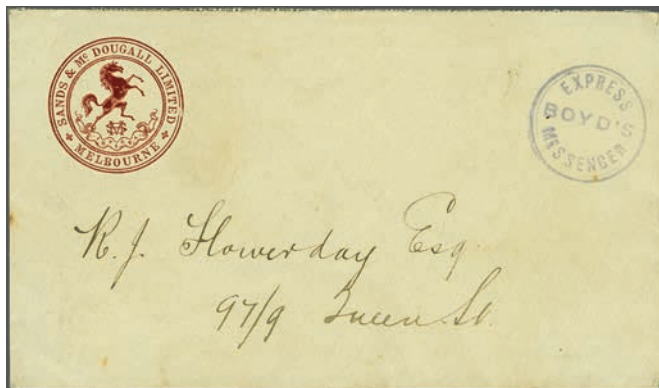 SANDS & Mc DOUGALL LIMITED
MELBOURNE
EXPRESS
BOYD'S
MESSENGER
R. J. Flowerday Esq
97/9 Queen St.